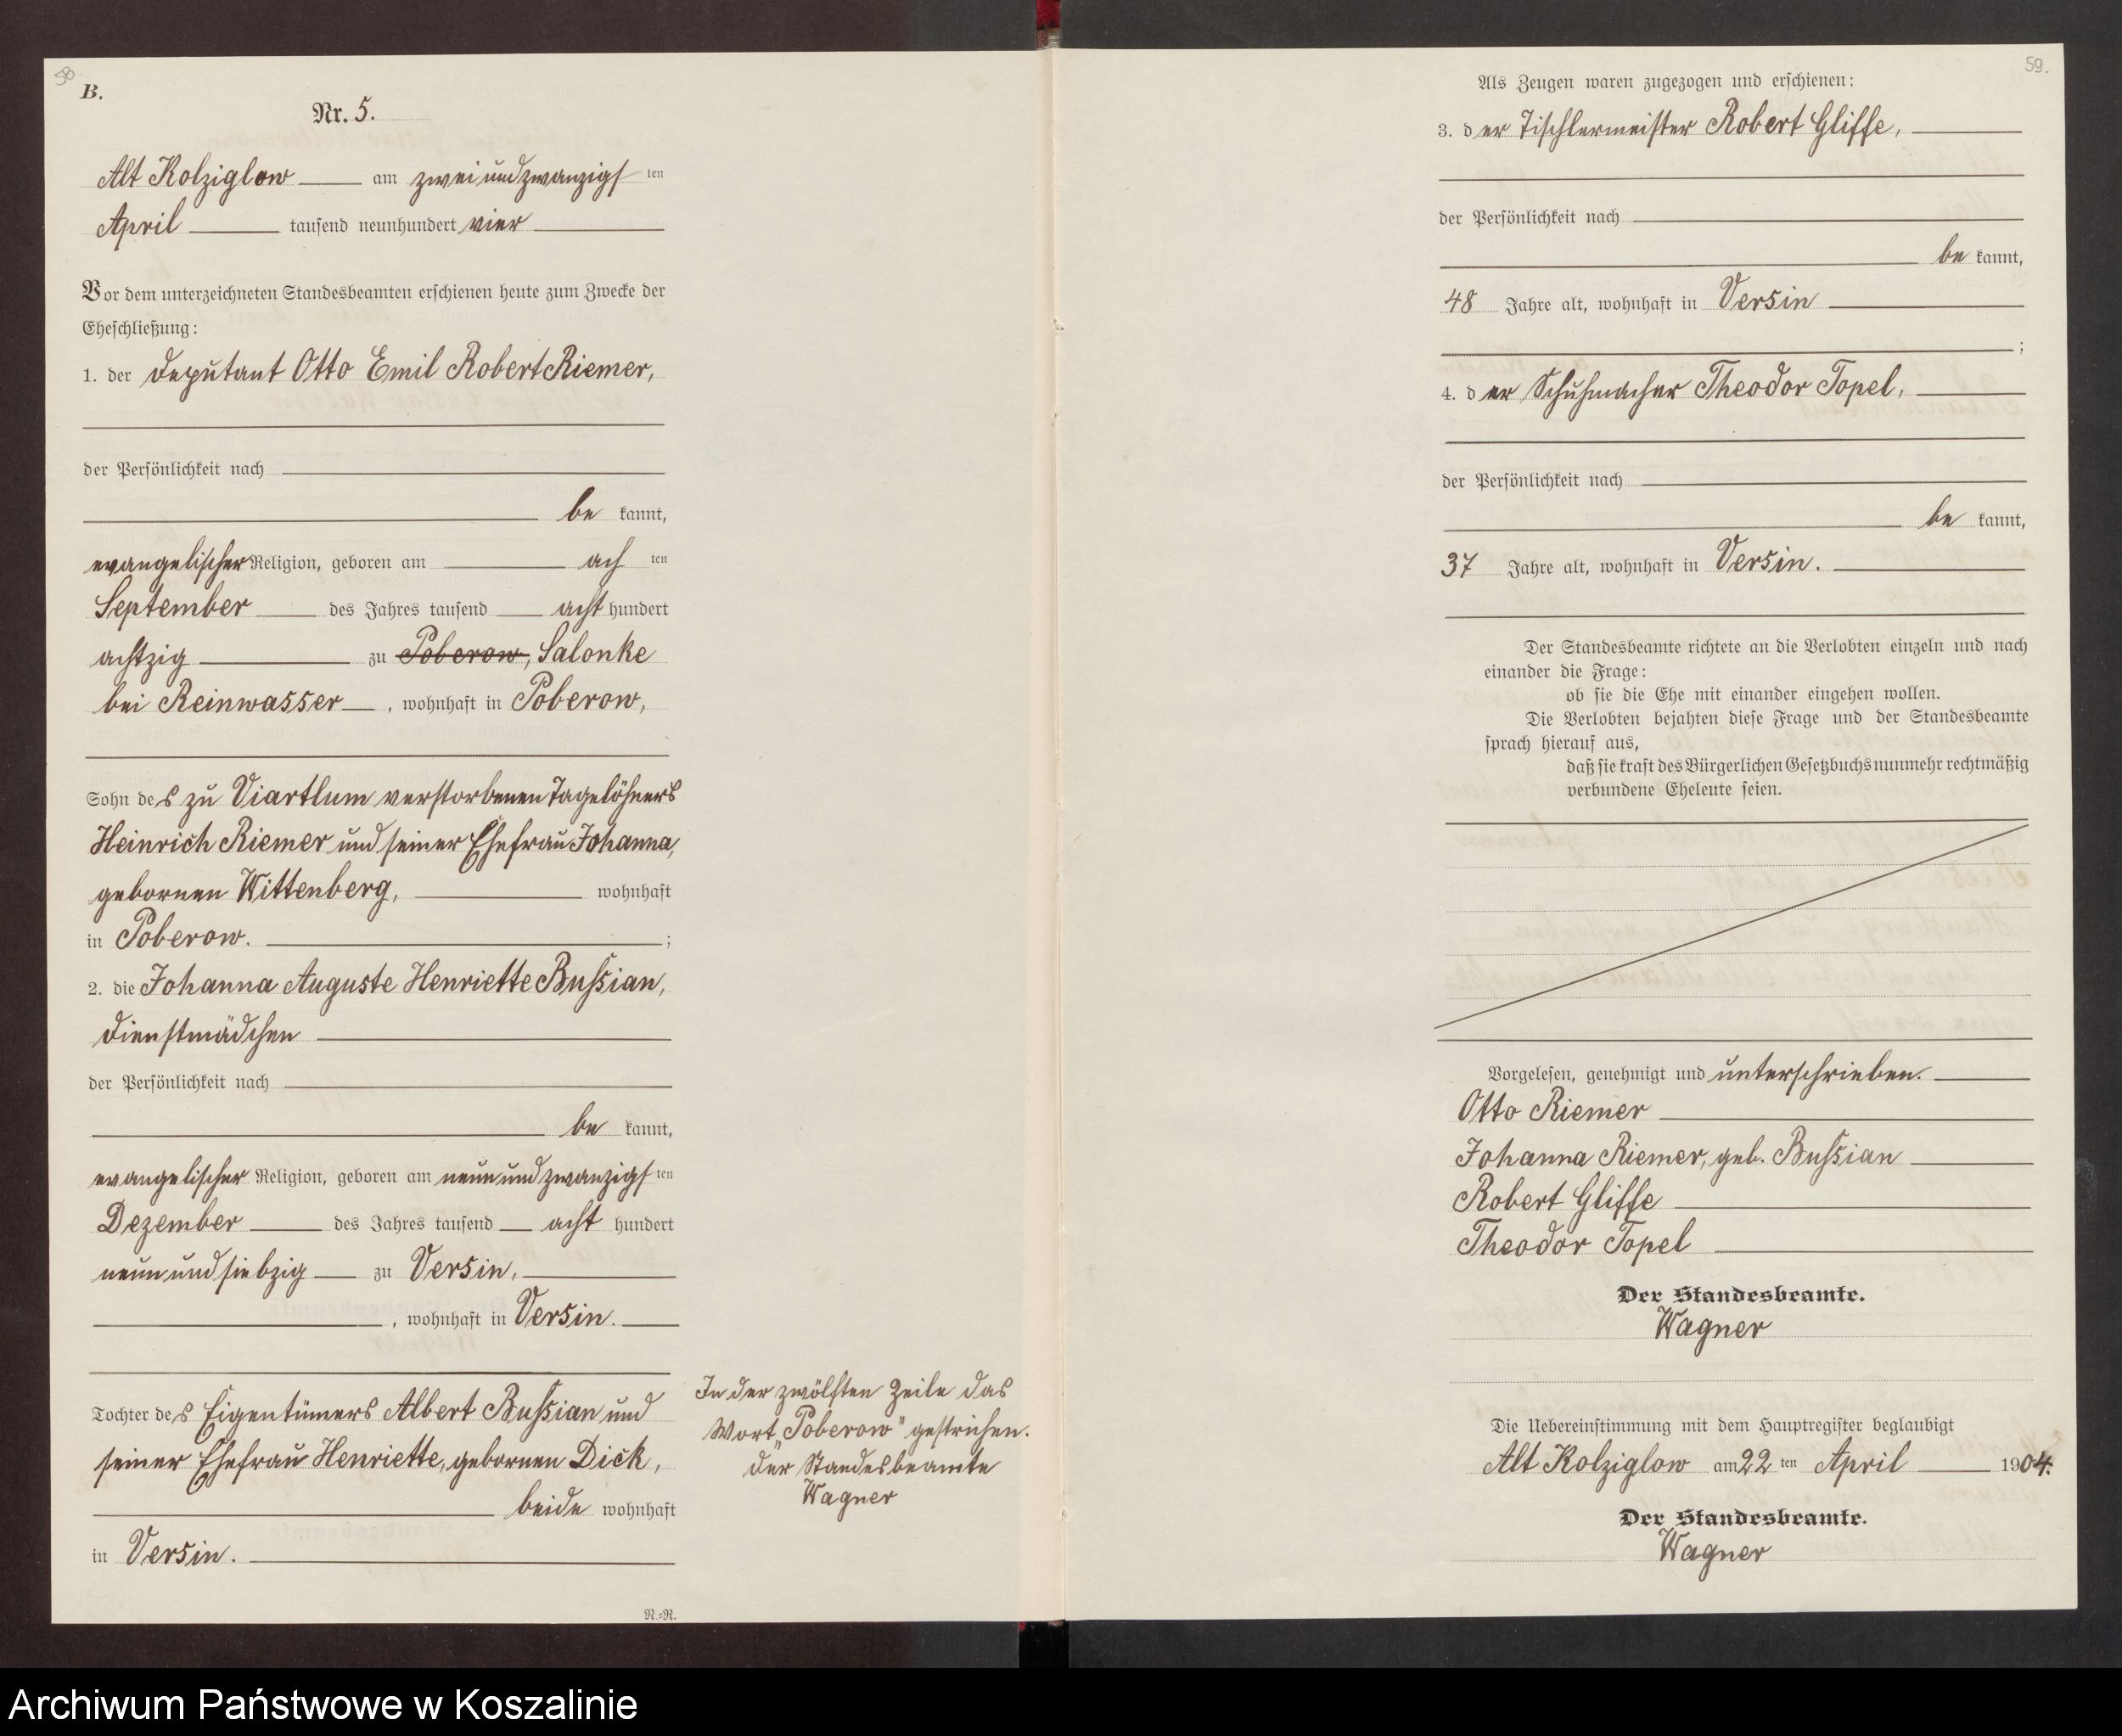 58
B.
Nr. 5.
Alt Kolziglow am zweiundzwanzigsten
April tausend neunhundert vier
Vor dem unterzeichneten Standesbeamten erschienen heute zum Zwecke der
Eheschließung:
1. der Deputant Otto Emil Robert Riemer,
der Persönlichkeit nach
be kannt,
evangelischer Religion, geboren am ach ten
September des Jahres tausend acht hundert
achtzig zu ~~Poberow~~, Salonke
bei Reinwasser, wohnhaft in Poberow,
Sohn des zu Viartlum verstorbenen Tagelöhners
Heinrich Riemer und seiner Ehefrau Johanna,
gebornen Wittenberg, wohnhaft
in Poberow. ;
2. die Johanna Auguste Henriette Bußian,
Dienstmädchen
der Persönlichkeit nach
be kannt,
evangelischer Religion, geboren am neunundzwanzigsten
Dezember des Jahres tausend acht hundert
neunundsiebzig zu Versin,
, wohnhaft in Versin.
Tochter des Eigentümers Albert Bußian und
seiner Ehefrau Henriette, gebornen Dick,
beide wohnhaft
in Versin.
N.=N.
In der zwölften Zeile das
Wort „Poberow" gestrichen.
Der Standesbeamte
Wagner
59.
Als Zeugen waren zugezogen und erschienen:
3. der Tischlermeister Robert Gliffe,
der Persönlichkeit nach
be kannt,
48 Jahre alt, wohnhaft in Versin
;
4. der Schuhmacher Theodor Topel,
der Persönlichkeit nach
be kannt,
37 Jahre alt, wohnhaft in Versin.
Der Standesbeamte richtete an die Verlobten einzeln und nach
einander die Frage:
ob sie die Ehe mit einander eingehen wollen.
Die Verlobten bejahten diese Frage und der Standesbeamte
sprach hierauf aus,
daß sie kraft des Bürgerlichen Gesetzbuchs nunmehr rechtmäßig
verbundene Eheleute seien.
Vorgelesen, genehmigt und unterschrieben.
Otto Riemer
Johanna Riemer, geb. Bußian
Robert Gliffe
Theodor Topel
Der Standesbeamte.
Wagner
Die Uebereinstimmung mit dem Hauptregister beglaubigt
Alt Kolziglow am 22 ten April 1904.
Der Standesbeamte.
Wagner
Archiwum Państwowe w Koszalinie